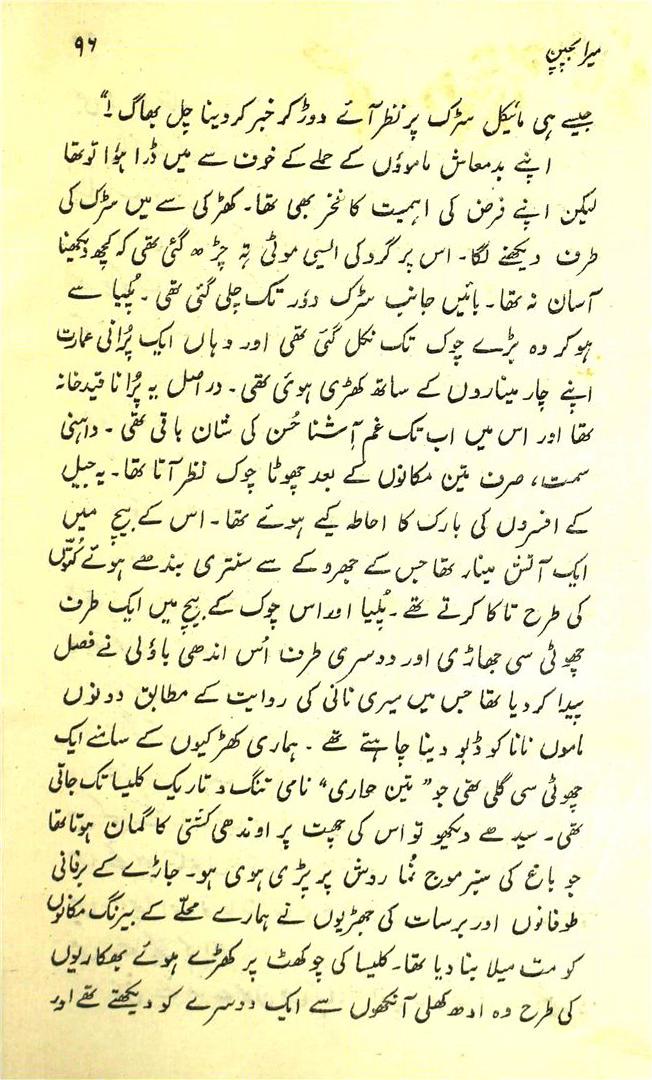 میرا بچپن
۹۶
جیسے ہی مائیکل سڑک پر نظر آئے دوڑ کر خبر کر دینا چل بھاگ !“
اپنے بدمعاش ماموؤں کے حملے کے خوف سے میں ڈرا ہؤا تو تھا
لیکن اپنے فرض کی اہمیت کا فخر بھی تھا۔ کھڑکی سے میں سڑک کی
طرف دیکھنے لگا۔ اس پر گرد کی ایسی موٹی تہ چڑھ گئی تھی کہ کچھ دیکھنا
آسان نہ تھا۔ بائیں جانب سڑک دؤر تک چلی گئی تھی۔ پُلیا سے
ہو کر وہ بڑے چوک تک نکل گئی تھی اور وہاں ایک پُرانی عمارت
اپنے چار میناروں کے ساتھ کھڑی ہوئی تھی۔ دراصل یہ پُرانا قیدخانہ
تھا اور اس میں اب تک غم آشنا حُسن کی شان باقی تھی۔ داہنی
سمت، صرف تین مکانوں کے بعد چھوٹا چوک نظر آتا تھا۔ یہ جیل
کے افسروں کی بارک کا احاطہ کیے ہوئے تھا۔ اس کے بیچ میں
ایک آتش مینار تھا جس کے جھروکے سے سنتری بندھے ہوئے کُتّوں
کی طرح تاکا کرتے تھے۔ پُلیا اور اس چوک کے بیچ میں ایک طرف
چھوٹی سی جھاڑی اور دوسری طرف اُس اندھی باؤلی نے فصل
پیدا کر دیا تھا جس میں میری نانی کی روایت کے مطابق دونوں
ماموں نانا کو ڈبو دینا چاہتے تھے۔ ہماری کھڑکیوں کے سامنے ایک
چھوٹی سی گلی تھی جو ”تین حواری“ نامی تنگ و تاریک کلیسا تک جاتی
تھی۔ سیدھے دیکھو تو اس کی چھت پر اوندھی کشتی کا گمان ہوتا تھا
جو باغ کی سبز موج نُما روش پر پڑی ہوی ہو۔ جاڑے کے برفانی
طوفانوں اور برسات کی جھڑیوں نے ہمارے محلّے کے بیرنگ مکانوں
کو مٹ میلا بنا دیا تھا۔ کلیسا کی چوکھٹ پر کھڑے ہوئے بھکاریوں
کی طرح وہ ادھ کھلی آنکھوں سے ایک دوسرے کو دیکھتے تھے اور